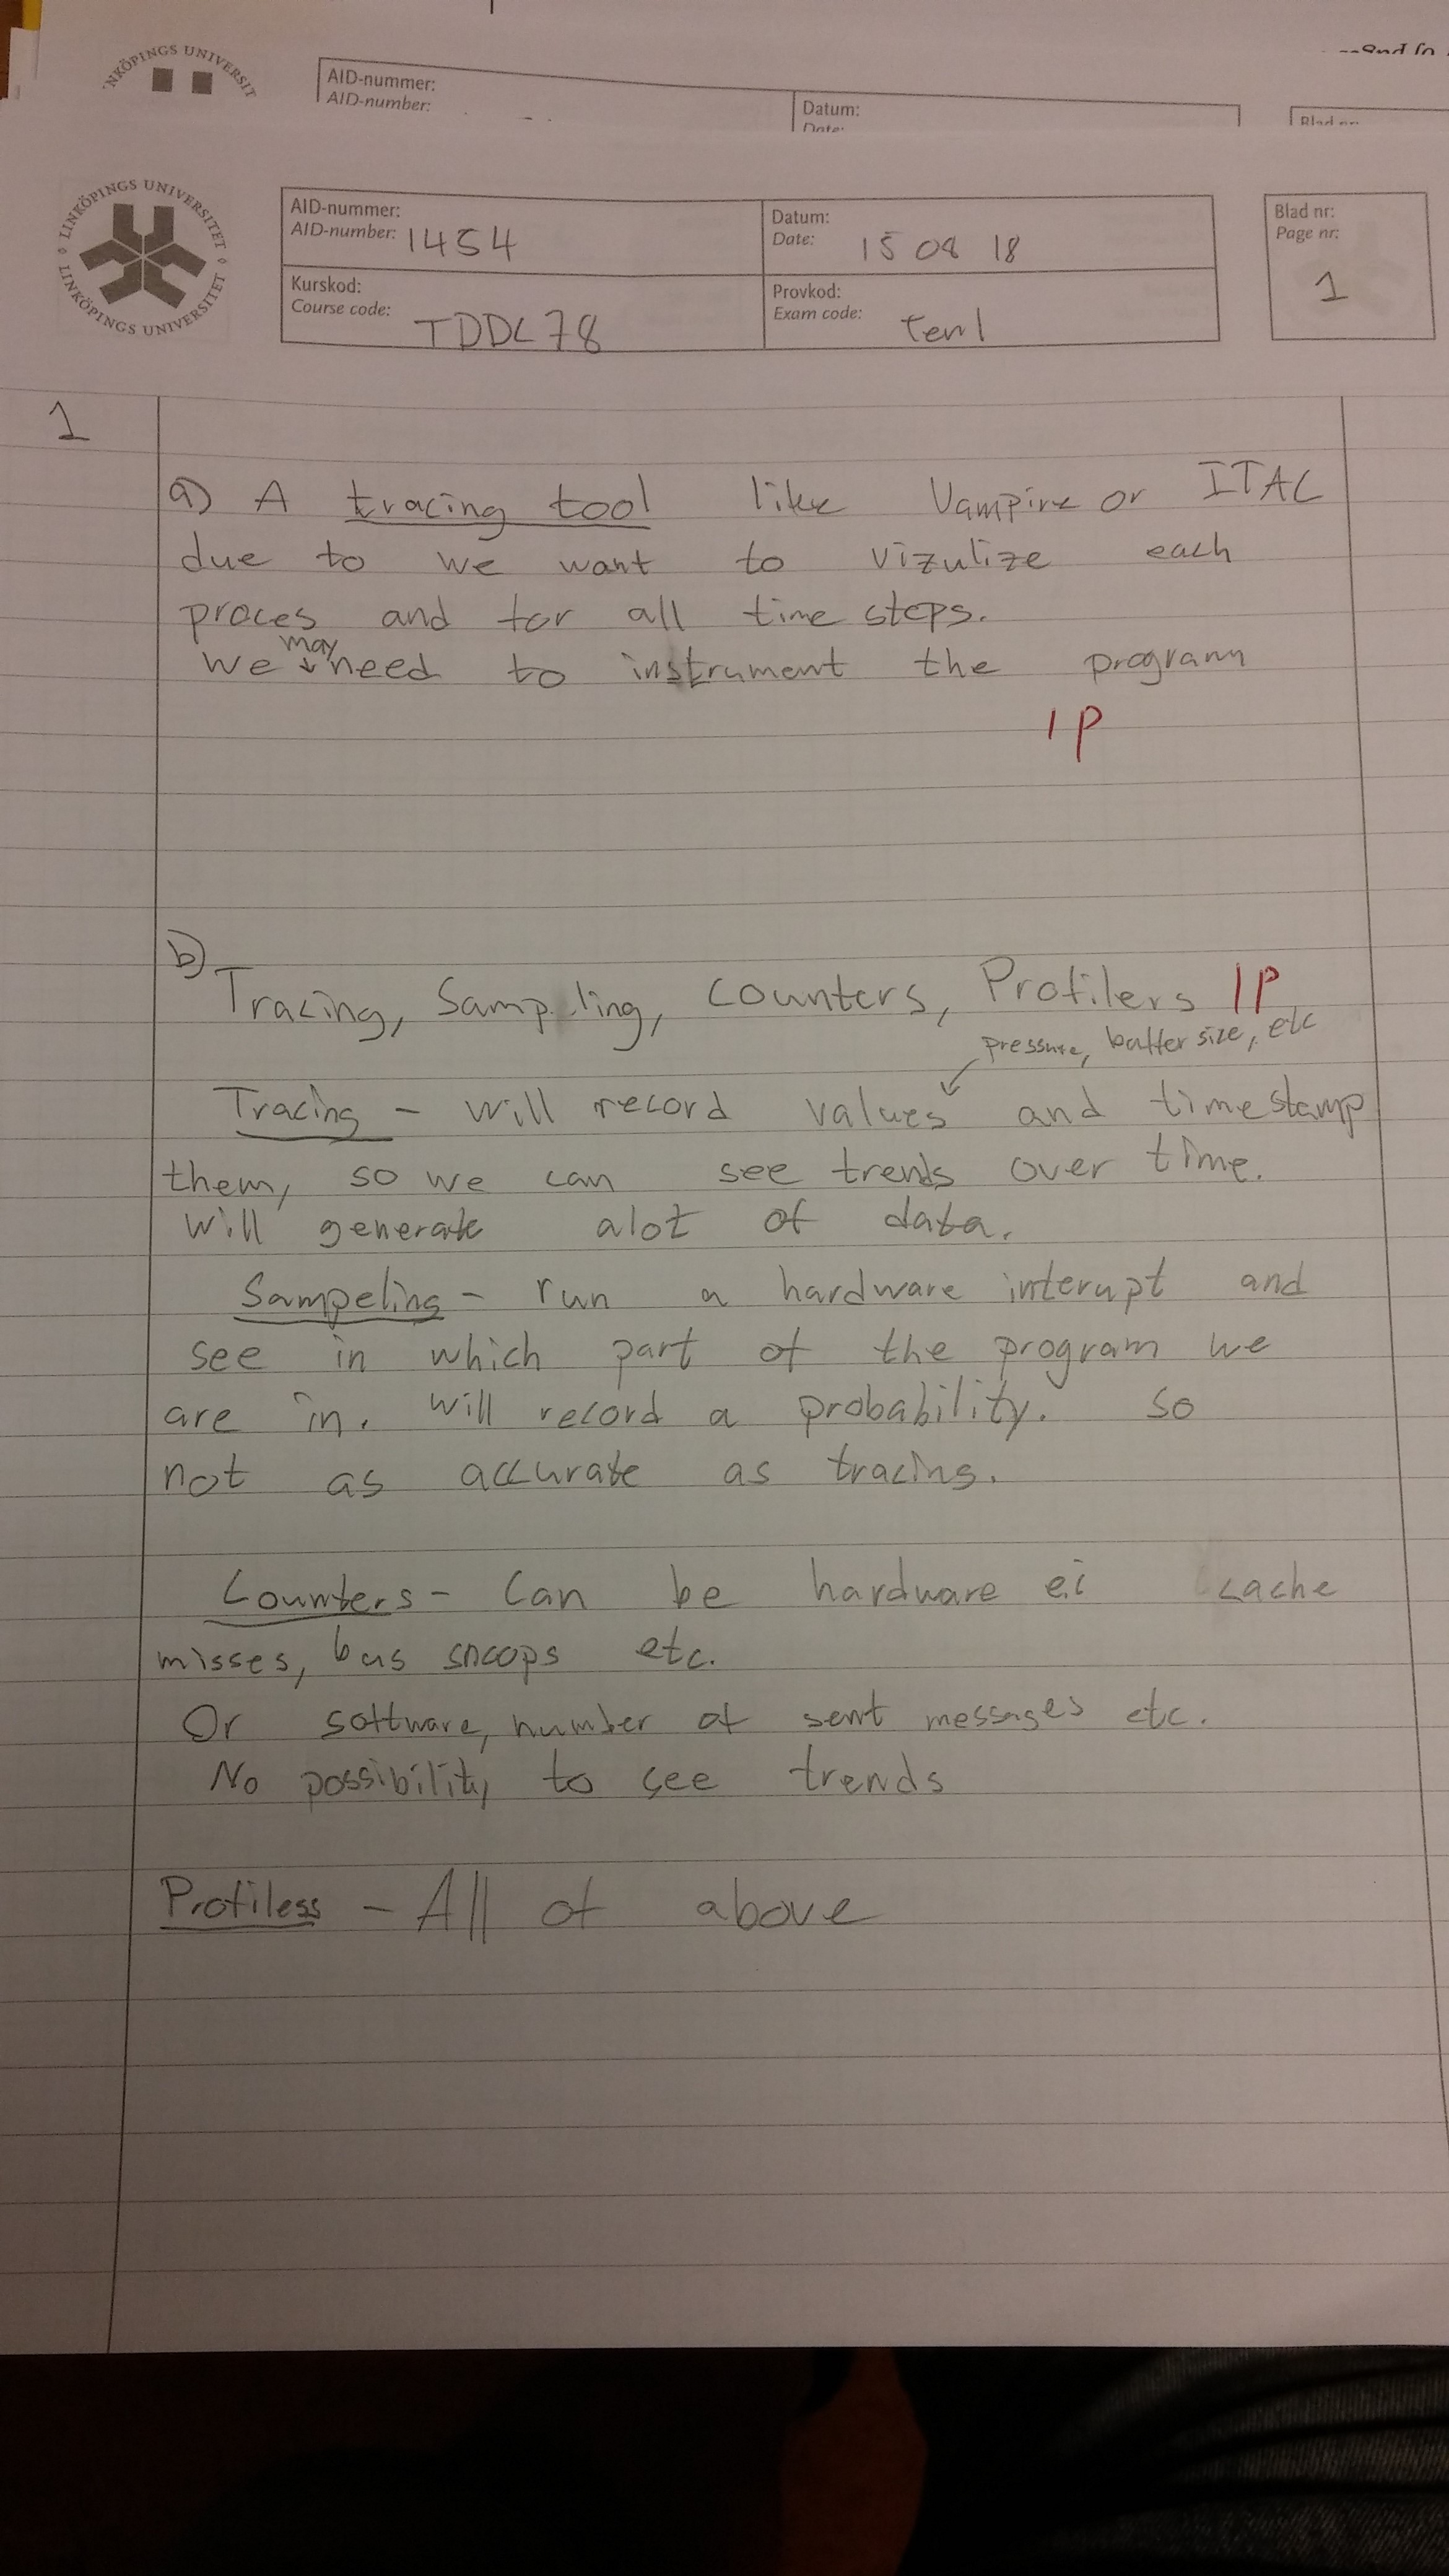 AID-nummer:
AID-number:
Datum:
LINKÖPINGS UNIVERSITET
LINKÖPINGS UNIVERSITET
AID-nummer:
AID-number: 1454
Datum:
Date: 15 08 18
Blad nr:
Page nr:
1
Kurskod:
Course code: TDDC78
Provkod:
Exam code: ten1
1
a) A tracing tool like Vampire or ITAC
due to we want to vizulize each
proces and for all time steps.
may
we need to instrument the program
1P
b)
Tracing, Sampling, counters, Profilers 1P
pressure, buffer size, etc
Tracing - will record values and timestamp
them, so we can see trends over time.
will generate alot of data.
Sampeling - run a hardware interupt and
see in which part of the program we
are in. will record a probability. so
not as accurate as tracing.
Counters - Can be hardware ei cache
misses, bus snoops etc.
Or software, number of sent messages etc.
No possibility to see trends
Profiless - All of above